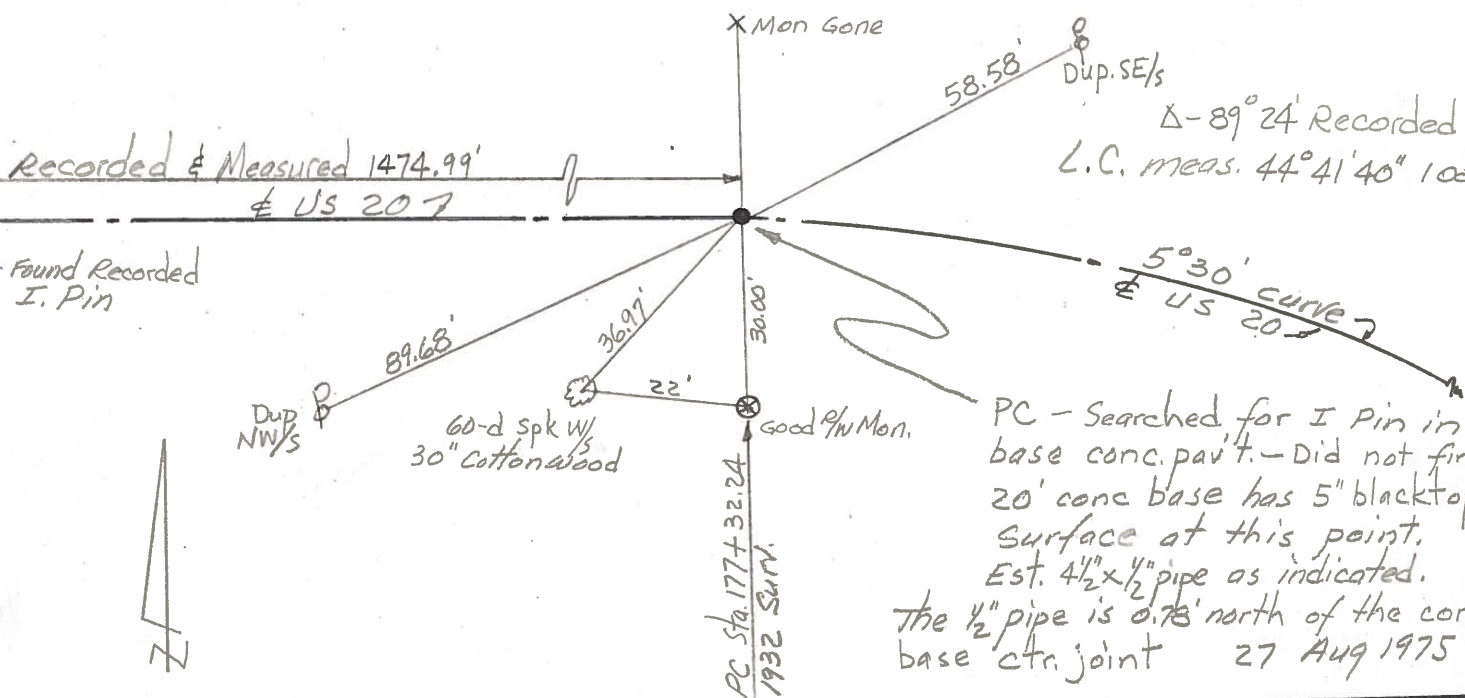 Mon Gone
58.58'
Dup. SE/s
Δ-89°24' Recorded
L.C. meas. 44°41'40"
Recorded & Measured 1474.99'
℄ US 20
Found Recorded
I. Pin
5°30' curve
℄ US 20
89.68'
36.97'
30.00'
22'
Dup.
NW/s
60-d spk w/s
30" Cottonwood
Good R/W Mon.
PC Sta. 177+32.24
1932 Surv.
PC - Searched for I Pin in
base conc. pav't. - Did not
20' conc base has 5" blacktop
Surface at this point.
Est. 4½" x ½" pipe as indicated.
The ½" pipe is north of the
base ctr. joint 27 Aug 1975
N